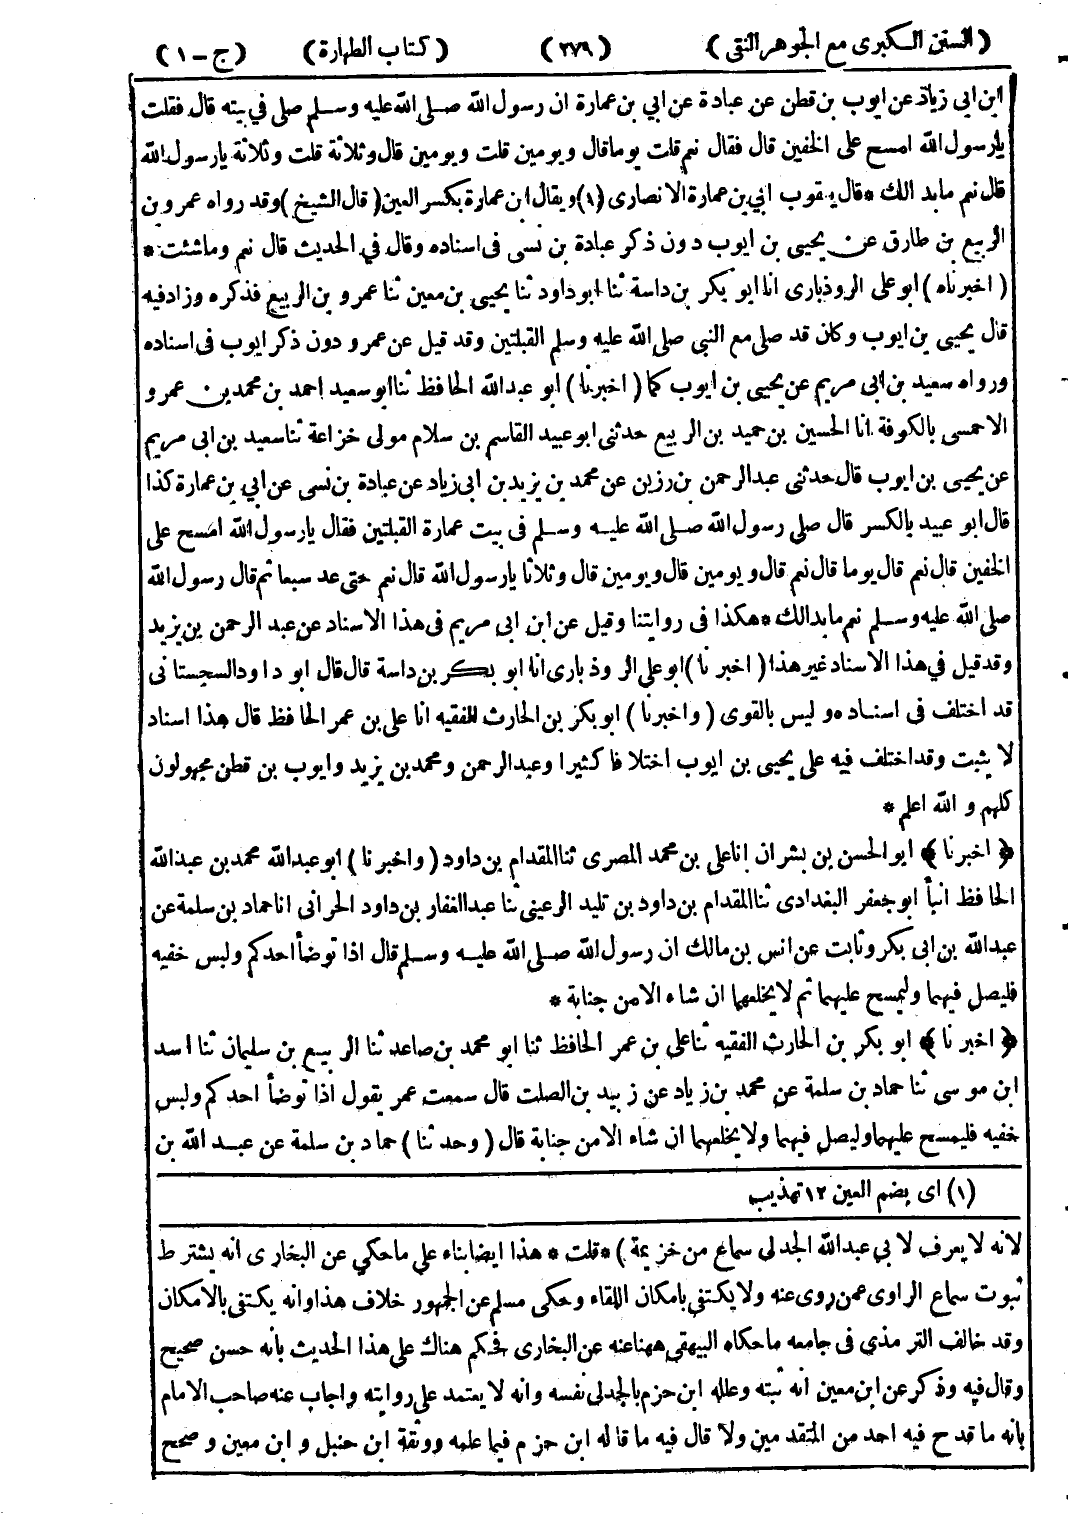 ( السنن الكبرى مع الجوهر النقى ) ( ٢٧٩ ) ( كتاب الطهارة ) ( ج - ١ )
ابن ابى زياد عن ايوب بن قطن عن عبادة عن ابي بن عمارة ان رسول الله صلى الله عليه وسلم صلى في بيته قال فقلت
يارسول الله امسح على الخفين قال فقال نعم قلت يوما قال ويومين قلت ويومين قال وثلاثة قلت وثلاثة يارسول الله
قال نعم ما بدا لك * قال يعقوب ابي بن عمارة الانصارى (١) ويقال ابن عمارة بكسر العين ( قال الشيخ ) وقد رواه عمرو بن
الربيع بن طارق عن يحيى بن ايوب دون ذكر عبادة بن نسى فى اسناده وقال في الحديث قال نعم وماشئت *
( اخبرناه ) ابو على الروذبارى انا ابو بكر بن داسة ثنا ابو داود ثنا يحيى بن معين ثنا عمرو بن الربيع فذكره وزاد فيه
قال يحيى بن ايوب وكان قد صلى مع النبي صلى الله عليه وسلم القبلتين وقد قيل عن عمرو دون ذكر ايوب فى اسناده
ورواه سعيد بن ابى مريم عن يحيى بن ايوب كما ( اخبرنا ) ابو عبدالله الحافظ ثنا ابو سعيد احمد بن محمد بن عمرو
الاحمسى بالكوفة انا الحسين بن حميد بن الربيع حدثنى ابو عبيد القاسم بن سلام مولى خزاعة ثنا سعيد بن ابى مريم
عن يحيى بن ايوب قال حدثنى عبدالرحمن بن رزين عن محمد بن يزيد بن ابى زياد عن عبادة بن نسى عن ابي بن عمارة كذا
قال ابو عبيد بالكسر قال صلى رسول الله صلى الله عليه وسلم فى بيت عمارة القبلتين فقال يارسول الله امسح على
الخفين قال نعم قال يوما قال نعم قال ويومين قال ويومين قال وثلاثا يارسول الله قال نعم حتى عد سبعا ثم قال رسول الله
صلى الله عليه وسلم نعم ما بدالك * هكذا فى روايتنا وقيل عن ابن ابى مريم فى هذا الاسناد عن عبد الرحمن بن يزيد
وقد قيل في هذا الاسناد غير هذا ( اخبرنا ) ابو على الروذبارى انا ابو بكر بن داسة قال قال ابو داود السجستانى
قد اختلف فى اسناده وليس بالقوى ( واخبرنا ) ابو بكر بن الحارث الفقيه انا على بن عمر الحافظ قال هذا اسناد
لا يثبت وقد اختلف فيه على يحيى بن ايوب اختلافا كثيرا وعبدالرحمن ومحمد بن يزيد وايوب بن قطن مجهولون
كلهم و الله اعلم *
﴿ اخبرنا ﴾ ابو الحسن بن بشران انا على بن محمد المصرى ثنا المقدام بن داود ( واخبرنا ) ابو عبدالله محمد بن عبدالله
الحافظ انبأ ابو جعفر البغدادى ثنا المقدام بن داود بن تليد الرعينى ثنا عبدالغفار بن داود الحرانى انا حماد بن سلمة عن
عبدالله بن ابى بكر وثابت عن انس بن مالك ان رسول الله صلى الله عليه وسلم قال اذا توضأ احدكم ولبس خفيه
فليصل فيهما وليمسح عليهما ثم لا يخلعهما ان شاء الا من جنابة *
﴿ اخبرنا ﴾ ابو بكر بن الحارث الفقيه ثنا على بن عمر الحافظ ثنا ابو محمد بن صاعد ثنا الربيع بن سليمان ثنا اسد
ابن موسى ثنا حماد بن سلمة عن محمد بن زياد عن زبيد بن الصلت قال سمعت عمر يقول اذا توضأ احدكم ولبس
خفيه فليمسح عليهما وليصل فيهما ولا يخلعهما ان شاء الا من جنابة قال ( وحدثنا ) حماد بن سلمة عن عبد الله بن
(١) اى بضم العين ١٢ تهذيب
لانه لا يعرف لابي عبدالله الجدلى سماع من خزيمة ) * قلت * هذا ايضا بناء على ما حكي عن البخارى انه يشترط
ثبوت سماع الراوى عمن روى عنه ولا يكتفى بامكان اللقاء وحكى مسلم عن الجمهور خلاف هذا وانه يكتفى بالامكان
وقد خالف الترمذي فى جامعه ما حكاه البيهقى ههنا عنه عن البخارى فحكم هناك على هذا الحديث بأنه حسن صحيح
وقال فيه وذكر عن ابن معين انه ثبته وعلله ابن حزم بالجدلى نفسه وانه لا يعتمد على روايته واجاب عنه صاحب الامام
بأنه ما قدح فيه احد من المتقدمين ولا قال فيه ما قاله ابن حزم فيما علمه ووثقة ابن حنبل و ابن معين و صحح